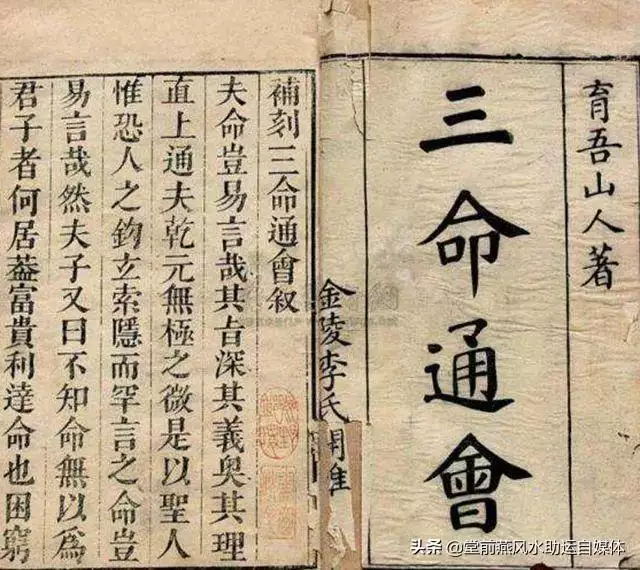 育吾山人著
三命通會
金陵李氏
補刻三命通會叙
夫命豈易言哉其旨深其義奥其理
直上通夫乾元無極之微是以聖人
惟恐人之鈎玄索隱而罕言之命豈
易言哉然夫子又曰不知命無以為
君子者何居葢富貴利達命也困窮
头条 @堂前燕风水助运自媒体